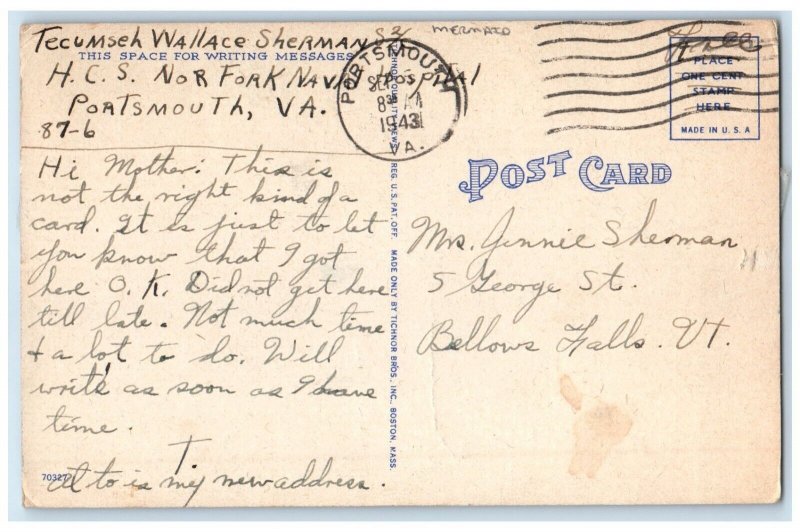 Tecumseh Wallace Sherman S2
mermaid
THIS SPACE FOR WRITING MESSAGES
H.C.S. Nor Fork Naval Hospital
Portsmouth, VA.
87-6
Hi Mother: This is
not the right kind of a
card. It is just to let
you know that I got
here O.K. Did not get here
till late. Not much time
+ a lot to do. Will
write as soon as I have
time.
T.
At to is my new address.
70327
PORTSMOUTH
SEP
1943
VA.
REG. U.S. PAT. OFF. MADE ONLY BY TICHNOR BROS., INC., BOSTON, MASS.
Free
PLACE
ONE CENT
STAMP
HERE
MADE IN U.S.A
POST CARD
Mrs. Jennie Sherman
5 George St.
Bellows Falls. Vt.